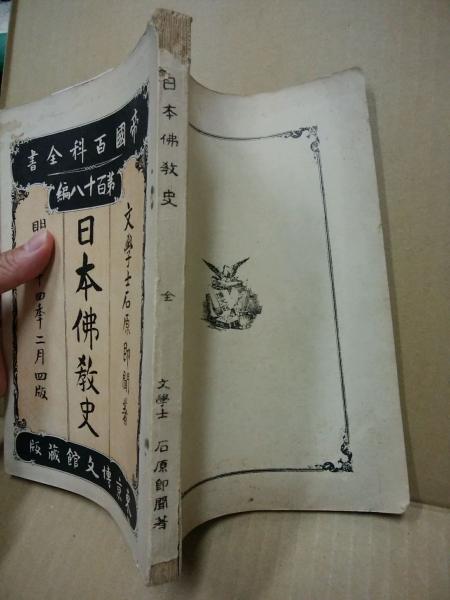 帝國百科全書
第百十八編
文學士石原即聞著
日本佛教史
明 十四年二月四版
東京博文館蔵版
日本佛教史
全
文學士 石原即聞著